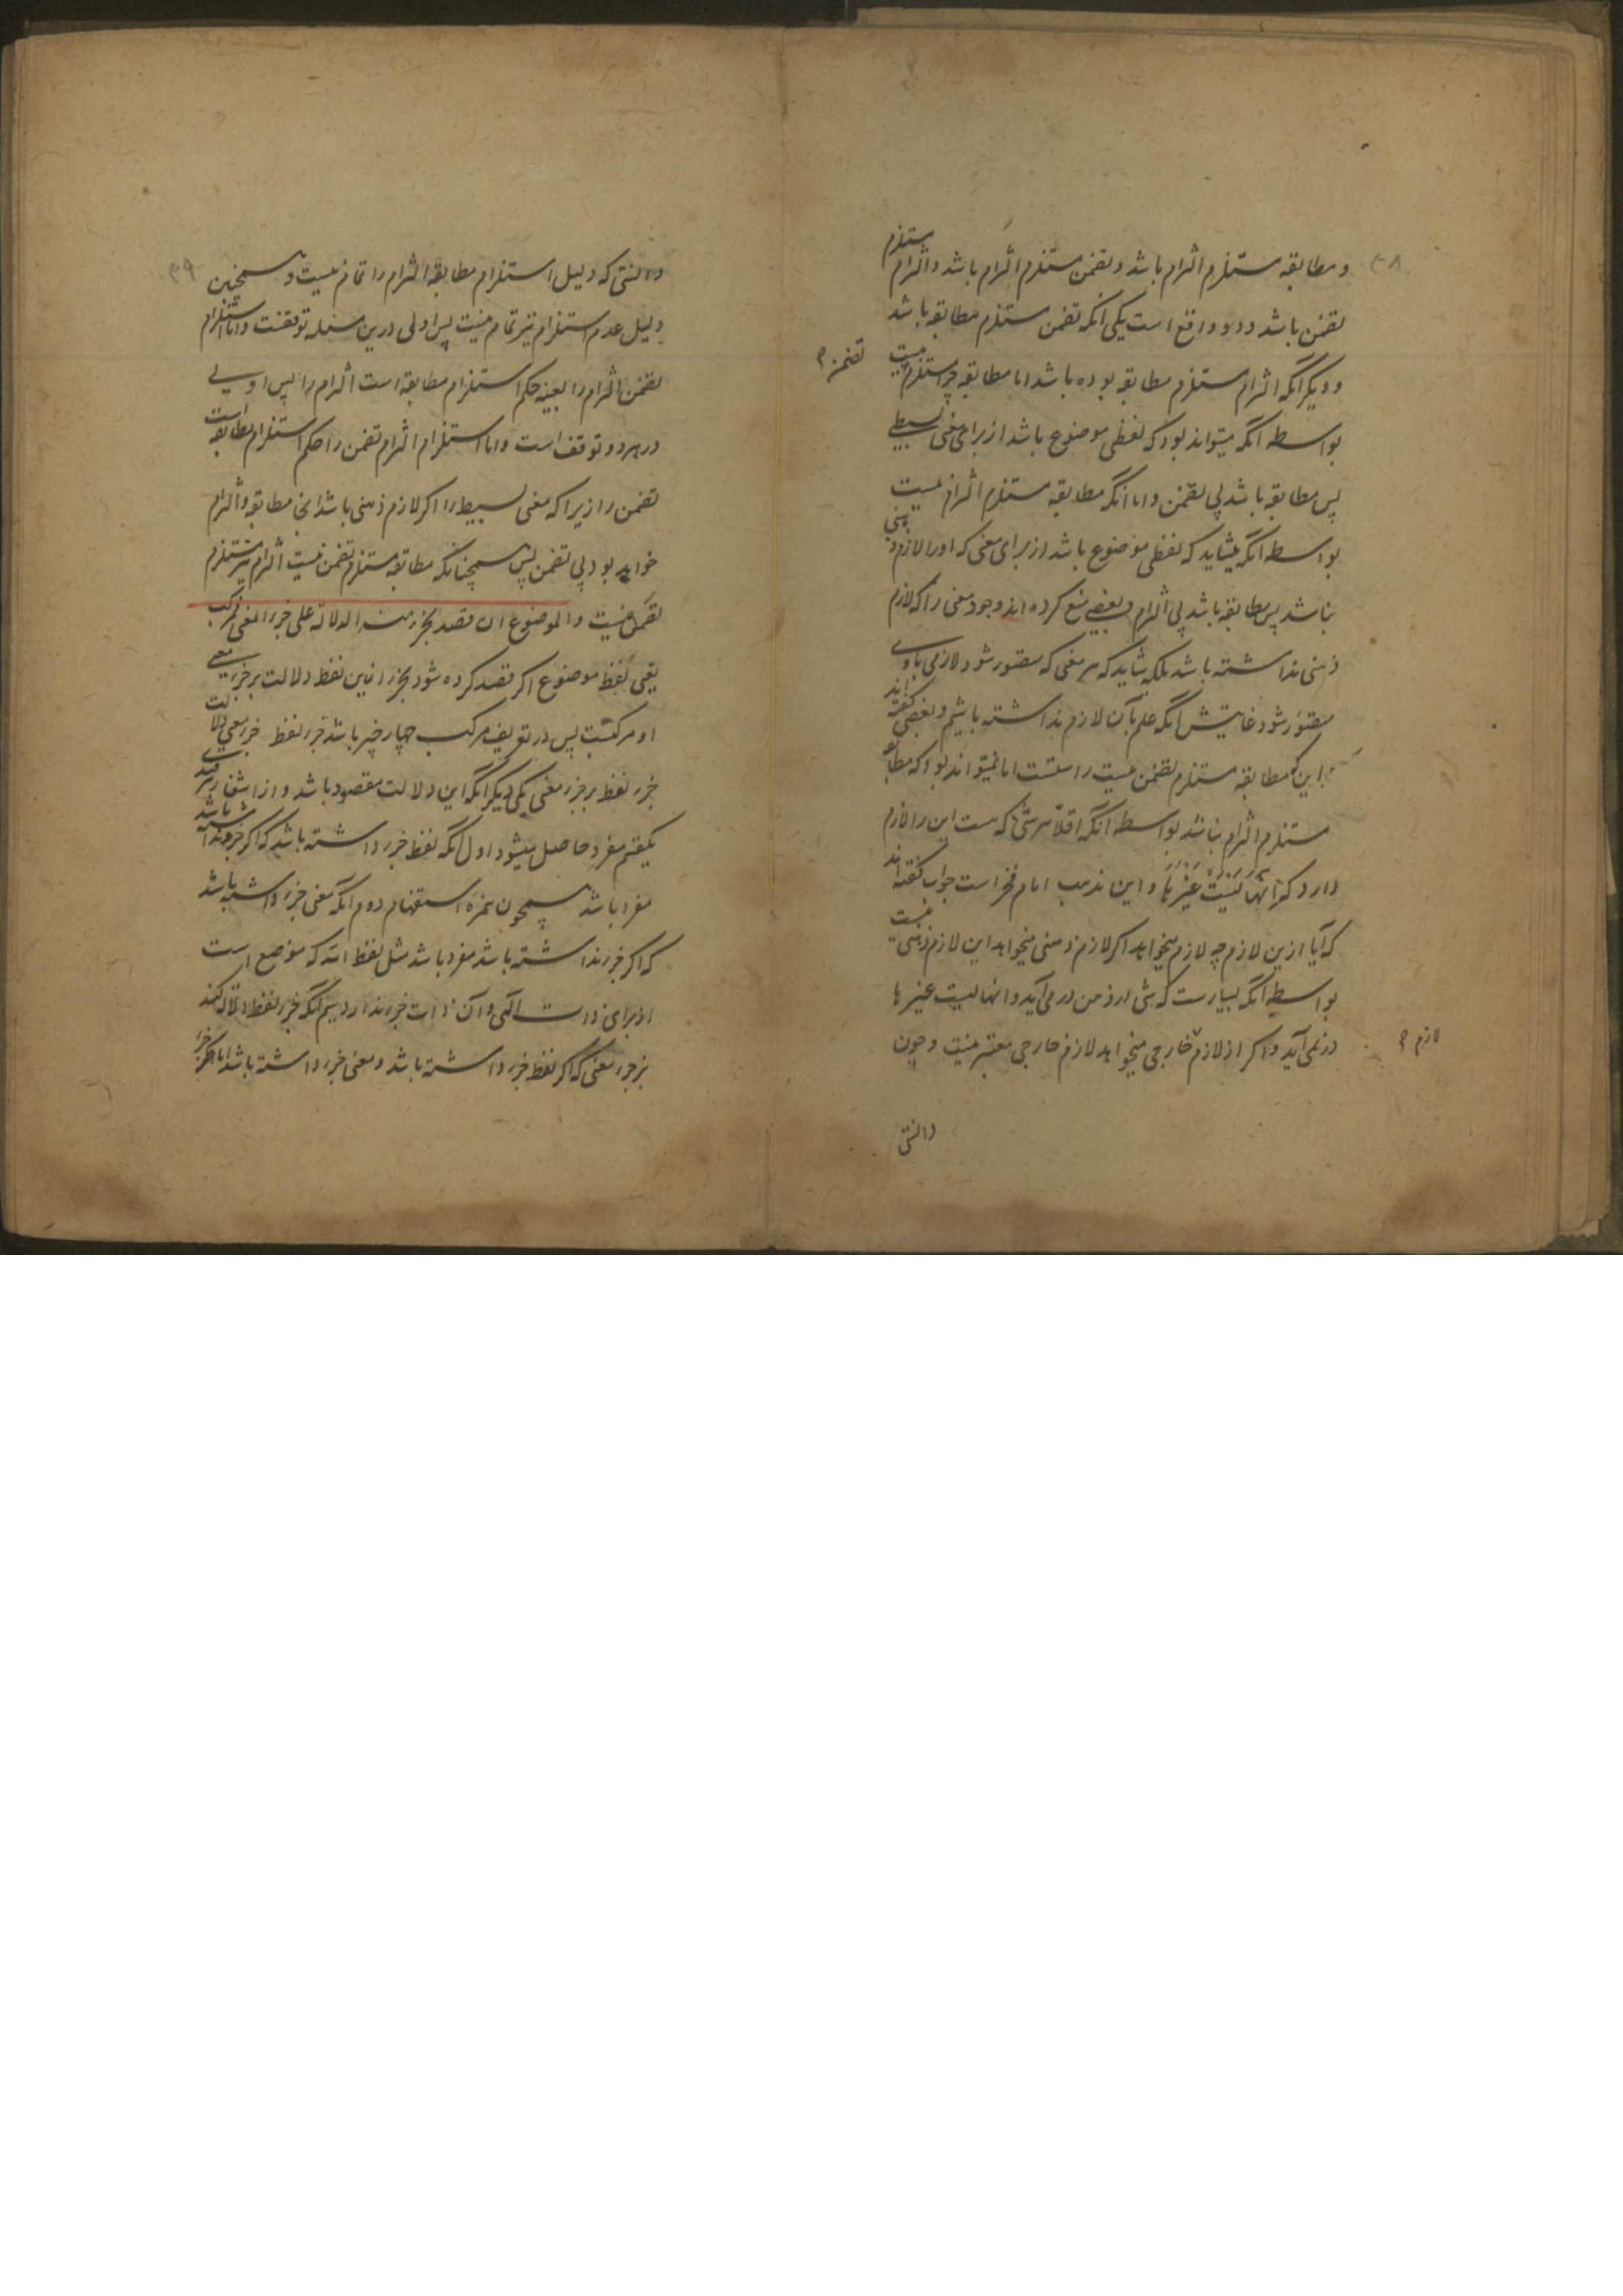 و مطابقه مستلزم التزام باشد و تضمن مستلزم التزام باشد و التزام مستلزم
تضمن باشد و دو واقع است یکی آنکه تضمن مستلزم مطابقه باشد
و دیگر آنکه التزام مستلزم مطابقه بوده باشد اما مطابقه چرا مستلزم نیست
تضمن
بواسطه آنکه میتواند بود که لفظی موضوع باشد از برای معنی بسیط
پس مطابقه باشد بی تضمن و اما آنکه مطابقه مستلزم التزام نیست
بواسطه آنکه میشاید که لفظی موضوع باشد از برای معنی که او را لازم ذهنی
نباشد پس مطابقه باشد بی التزام و بعضی منع کرده اند وجود معنی را که لازم
ذهنی نداشته باشد بلکه شاید که هر معنی که متصور شود لازمی با وی
متصور شود غایتش آنکه علم بآن لازم نداشته باشیم و بعضی گفته اند
این که مطابقه مستلزم تضمن نیست راستست اما نمیتواند بود که مطابقه
مستلزم التزام نباشد بواسطه آنکه اقلا هر شئ که هست این را لازم
دارد که انها لیست غیرها و این مذهب امام فخر است جواب گفته اند
که آیا ازین لازم چه لازم میخواهد اگر لازم ذهنی میخواهد این لازم ذهنی نیست
بواسطه آنکه بسیارست که شئ در ذهن در می آید و انها لیست غیرها
در نمی آید و اگر از لازم خارجی میخواهد لازم خارجی معتبر نیست و چون
لازم
دانستی
۳۹
دانستی که دلیل استلزام مطابقه التزام را تمام نیست و همچنین
دلیل عدم استلزام نیز تمام نیست پس اولی درین مسئله توقفست و اما استلزام
تضمن التزام را بعینه حکم استلزام مطابقه است التزام را پس اولی
در هر دو توقف است و اما استلزام التزام تضمن را حکم استلزام مطابقه است
تضمن را زیرا که معنی بسیط را اگر لازم ذهنی باشد آنجا مطابقه و التزام
خواهد بود بی تضمن پس همچنانکه مطابقه مستلزم تضمن نیست التزام نیز مستلزم
تضمن نیست و الموضوع ان قصد بجزء منه الدلالة علی جزء المعنی فمرکب
یعنی لفظ موضوع اگر قصد کرده شود بجزء ازین لفظ دلالت بر جزء معنی
او مرکبست پس در تعریف مرکب چهار چیز باشد جزء لفظ جزء معنی دلالت
جزء لفظ بر جزء معنی یکی دیگر آنکه این دلالت مقصود باشد و از انتفاء هر قیدی
یکقسم مفرد حاصل میشود اول آنکه لفظ جزء داشته باشد که اگر جزء نداشته باشد
مفرد باشد همچون همزه استفهام دوم آنکه معنی جزء داشته باشد
که اگر جزء نداشته باشد مفرد باشد مثل لفظ الله که موضوع است
از برای ذات الهی و آن ذات جزء ندارد سیم آنکه جزء لفظ دلالت کند
بر جزء معنی که اگر لفظ جزء داشته باشد و معنی جزء داشته باشد اما